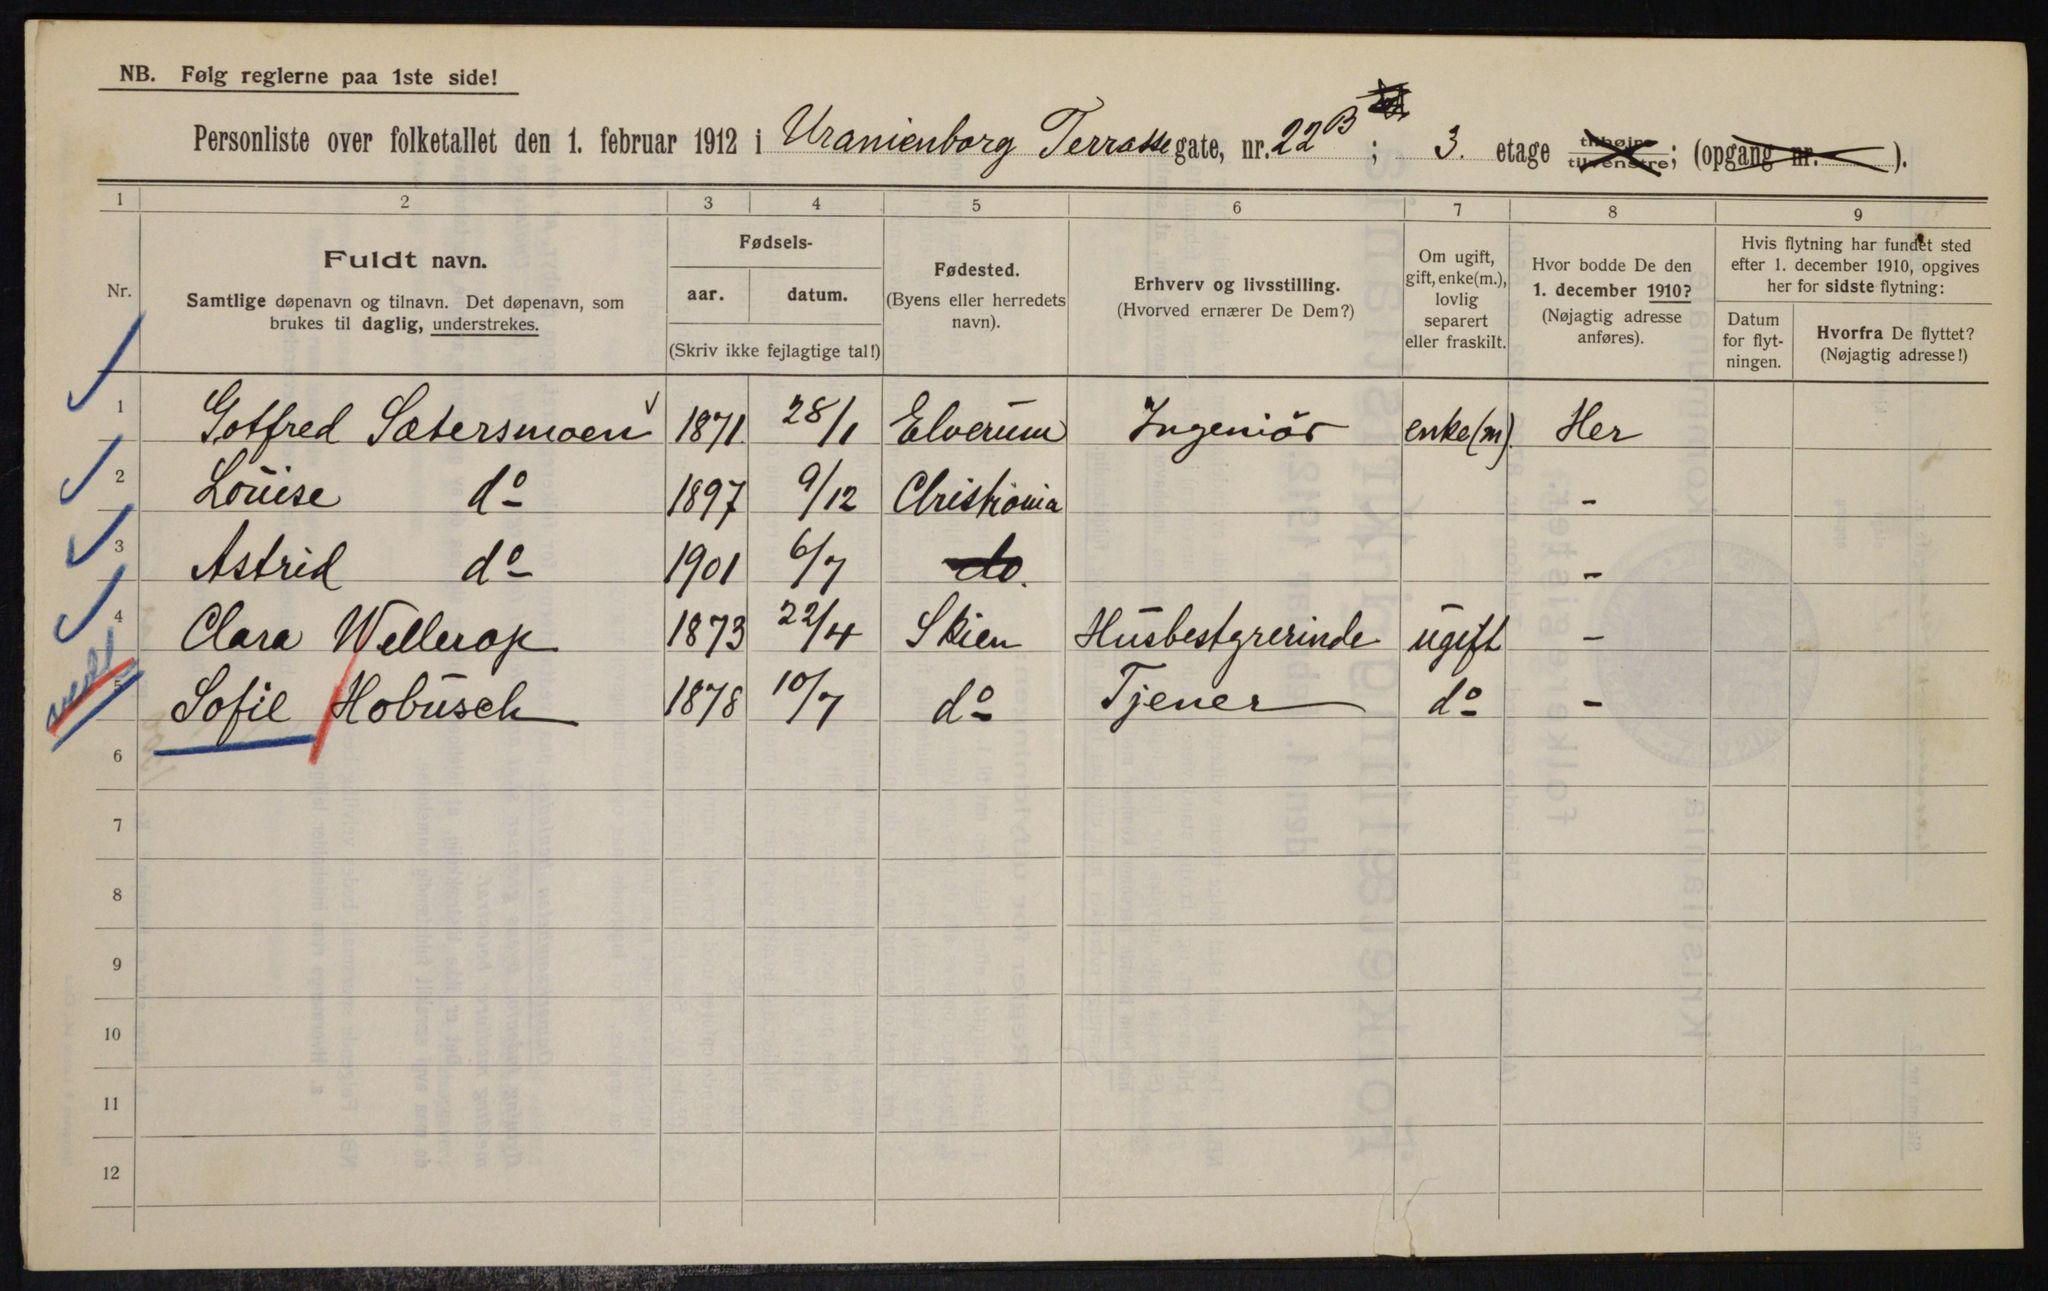 NB. Følg reglerne paa 1ste side!
Personliste over folketallet den 1. februar 1912 i Uranienborg Terrasse gate, nr. 22 B; 3. etage tilhøire tilvenstre; (opgang nr. ).
1 2 3 4 5 6 7 8 9
Nr.
Fuldt navn.
Samtlige døpenavn og tilnavn. Det døpenavn, som
brukes til daglig, understrekes.
Fødsels-
aar. datum.
(Skriv ikke fejlagtige tal!)
Fødested.
(Byens eller herredets
navn).
Erhverv og livsstilling.
(Hvorved ernærer De Dem?)
Om ugift,
gift, enke(m.),
lovlig
separert
eller fraskilt.
Hvor bodde De den
1. december 1910?
(Nøjagtig adresse
anføres).
Hvis flytning har fundet sted
efter 1. december 1910, opgives
her for sidste flytning:
Datum
for flyt-
ningen.
Hvorfra De flyttet?
(Nøjagtig adresse!)
1 Gotfred Sætersmoen 1871 28/1 Elverum Ingeniör enke(m) Her
2 Louise do 1897 9/12 Christiania -
3 Astrid do 1901 6/7 do. -
4 Clara Wellerop 1873 22/4 Skien Husbestyrerinde ugift -
5 Sofie Hobusch 1878 10/7 do Tjener do -
6
7
8
9
10
11
12